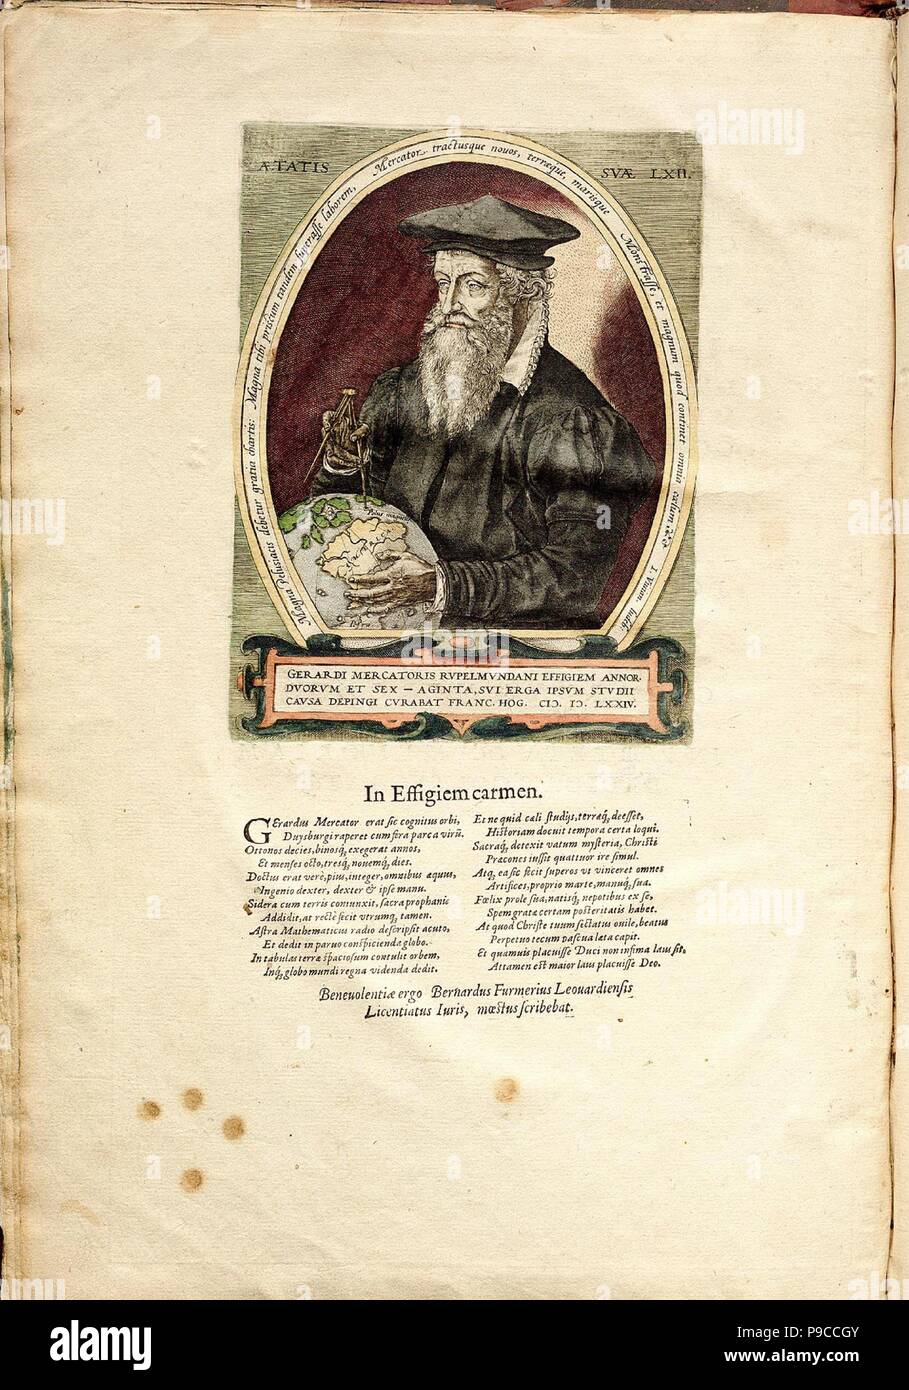 ÆTATIS SVÆ LXII.
Magna Pelusiacis debetur gratia chartis: Magna tibi priscum tandem superasse laborem, Mercator, tractusque nouos, terræque, marisque Monstrasse, et magnum quod continet omnia cælum.
I. Viuian. ludeb.
Polus magnetis
GERARDI MERCATORIS RVPELMVNDANI EFFIGIEM ANNOR.
DVORVM ET SEX — AGINTA, SVI ERGA IPSVM STVDII
CAVSA DEPINGI CVRABAT FRANC. HOG. CIↃ. IↃ. LXXIV.
In Effigiem carmen.
GErardus Mercator erat sic cognitus orbi,
Duysburgi raperet cum fera parca virũ.
Octonos decies, binosq, exegerat annos,
Et menses octo, tresq, nouemq, dies.
Doctus erat verè, pius, integer, omnibus æquus,
Ingenio dexter, dexter & ipse manu.
Sidera cum terris coniunxit, sacra prophanis
Addidit, at rectè fecit vtrumq, tamen.
Astra Mathematicus radio descripsit acuto,
Et dedit in paruo conspicienda globo.
In tabulas terræ spaciosum contulit orbem,
Inq, globo mundi regna videnda dedit.
Et ne quid cæli studijs, terræq, deesset,
Historiam docuit tempora certa loqui.
Sacraq, detexit vatum mysteria, Christi
Præcones iussit quattuor ire simul.
Atq, ea sic fecit superos vt vinceret omnes
Artifices, proprio marte, manuq, sua.
Fœlix prole sua, natisq, nepotibus ex se,
Spem grata certam posteritatis habet.
At quod Christe tuum sectatus ouile, beatus
Perpetuo tecum pascua læta capit.
Et quamuis placuisse Duci non infima laus sit,
Attamen est maior laus placuisse Deo.
Beneuolentiæ ergo Bernardus Furmerius Leouardiensis
Licentiatus Iuris, mœstus scribebat.
alamy
alamy stock photo
P9CCGY
www.alamy.com